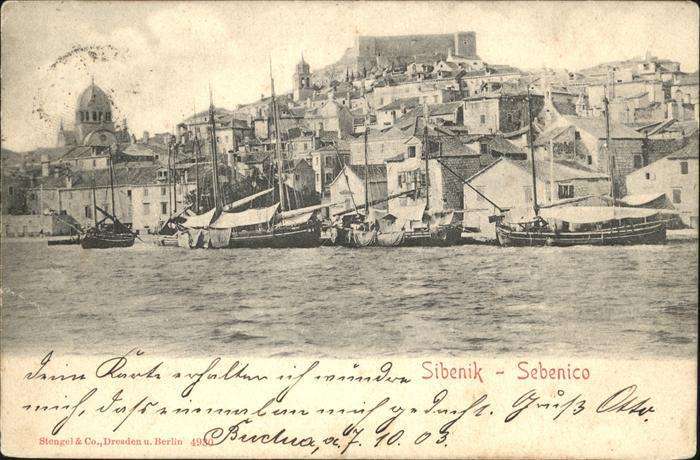 deine Karte erhalten ich wundre Sibenik - Sebenico
mich, dass einmal an mich gedacht. Gruß Otto.
Stengel & Co., Dresden u. Berlin 4930 7. 10. 03.